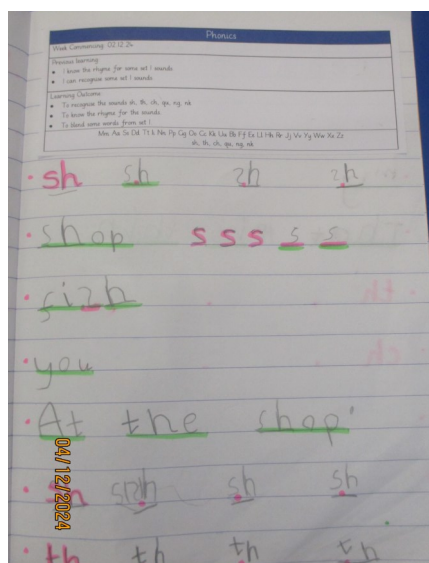 Phonics
Week Commencing: 02.12.24
Previous learning
• I know the rhyme for some set 1 sounds
• I can recognise some set 1 sounds.
Learning Outcome
• To recognise the sounds sh, th, ch, qu, ng, nk
• To know the rhyme for the sounds.
• To blend some words from set 1.
Mm Aa Ss Dd Tt Ii Nn Pp Gg Oo Cc Kk Uu Bb Ff Ee Ll Hh Rr Jj Vv Yy Ww Xx Zz
sh, th, ch, qu, ng, nk
sh sh sh sh
shop s s s s s
fish
you
At the shop
sh sh sh sh
th th th th
04/12/2024